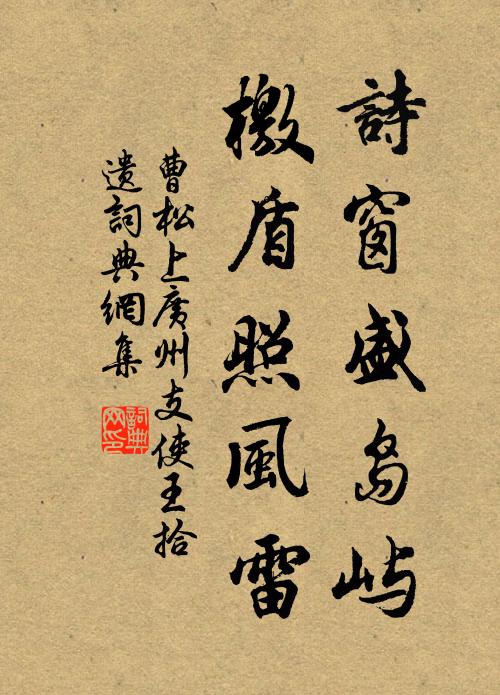 詩窗盛島嶼
檄盾照風雷
曹松上廣州支使王拾
遺詞典網集
詞典
网印